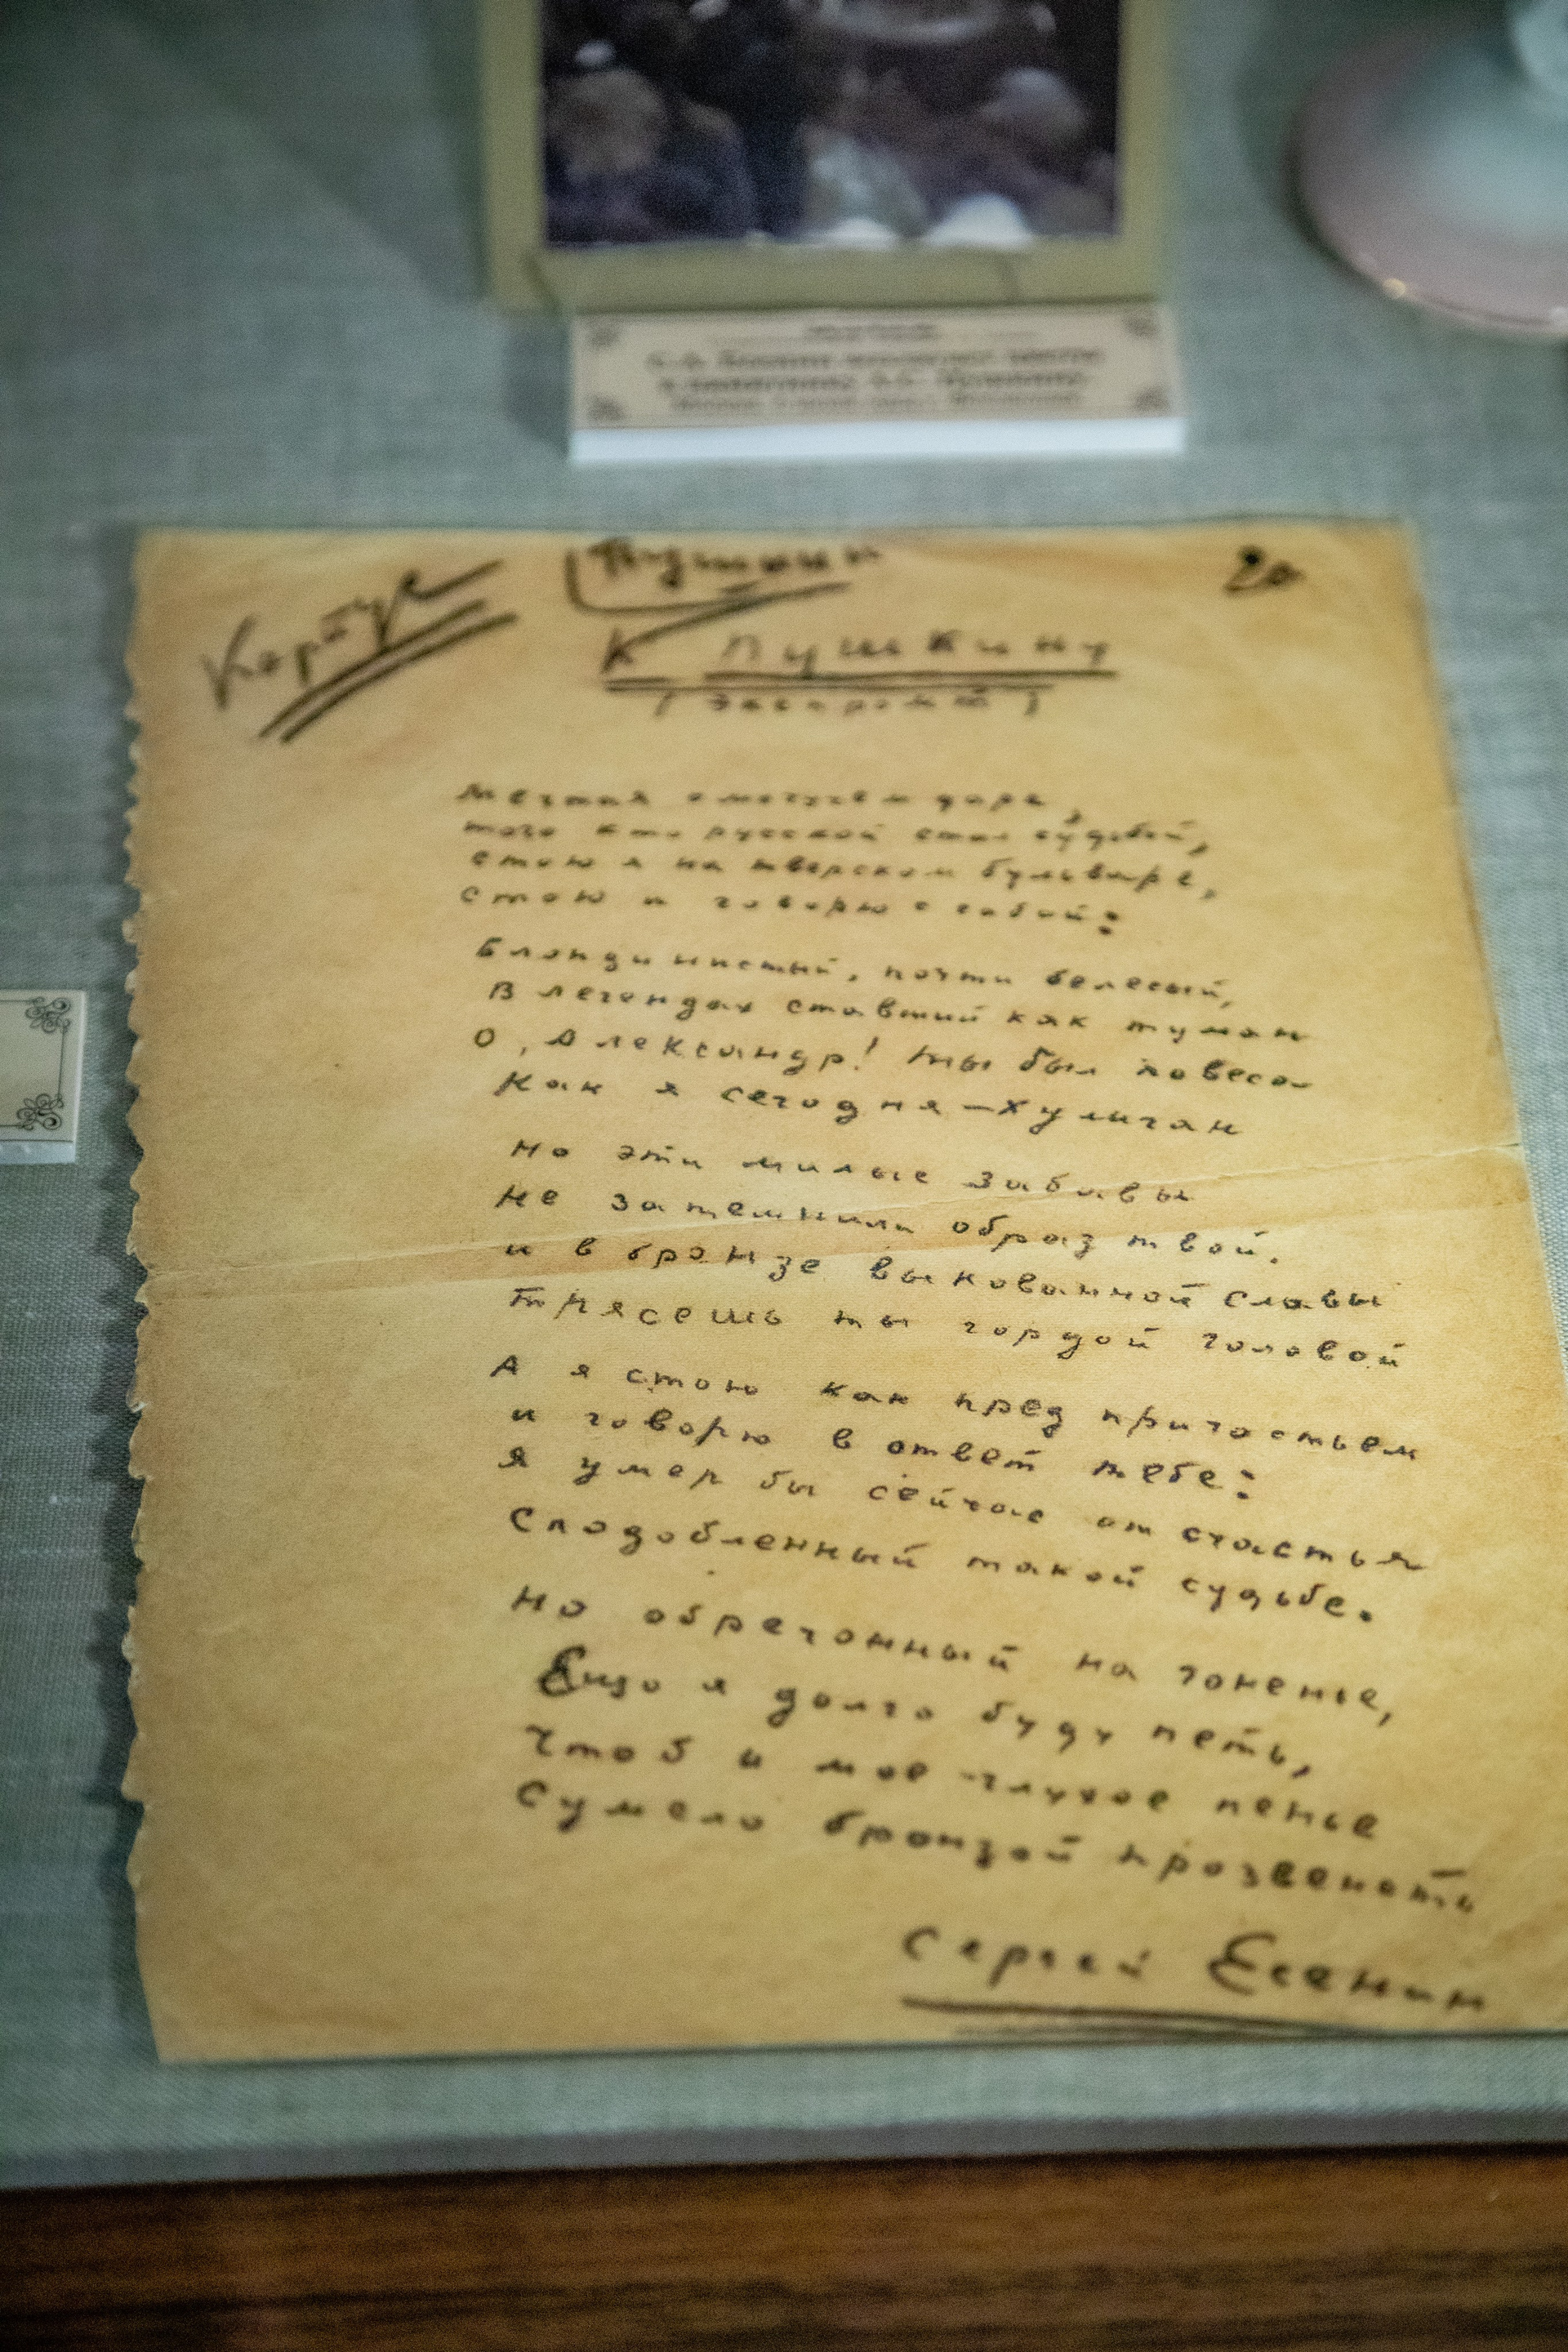 Корпус
Пушкин
20
К Пушкину
(экспромт)
Мечтая о могучем даре,
того кто русской стал судьбой,
стою я на тверском бульваре,
стою и говорю с собой:
Блондинистый, почти белесый,
В легендах ставший как туман
О, Александр! ты был повеса
Как я сегодня – хулиган
Но эти милые забавы
Не затемнили образ твой.
и в бронзе выкованной славы
Трясешь ты гордой головой
А я стою как пред причастьем
и говорю в ответ тебе:
я умер бы сейчас от счастья
Сподобленный такой судьбе.
Но обречонный на гоненье,
Ещо я долго буду петь,
Чтоб и мое глухое пенье
Сумело бронзой прозвенеть
Сергей Есенин